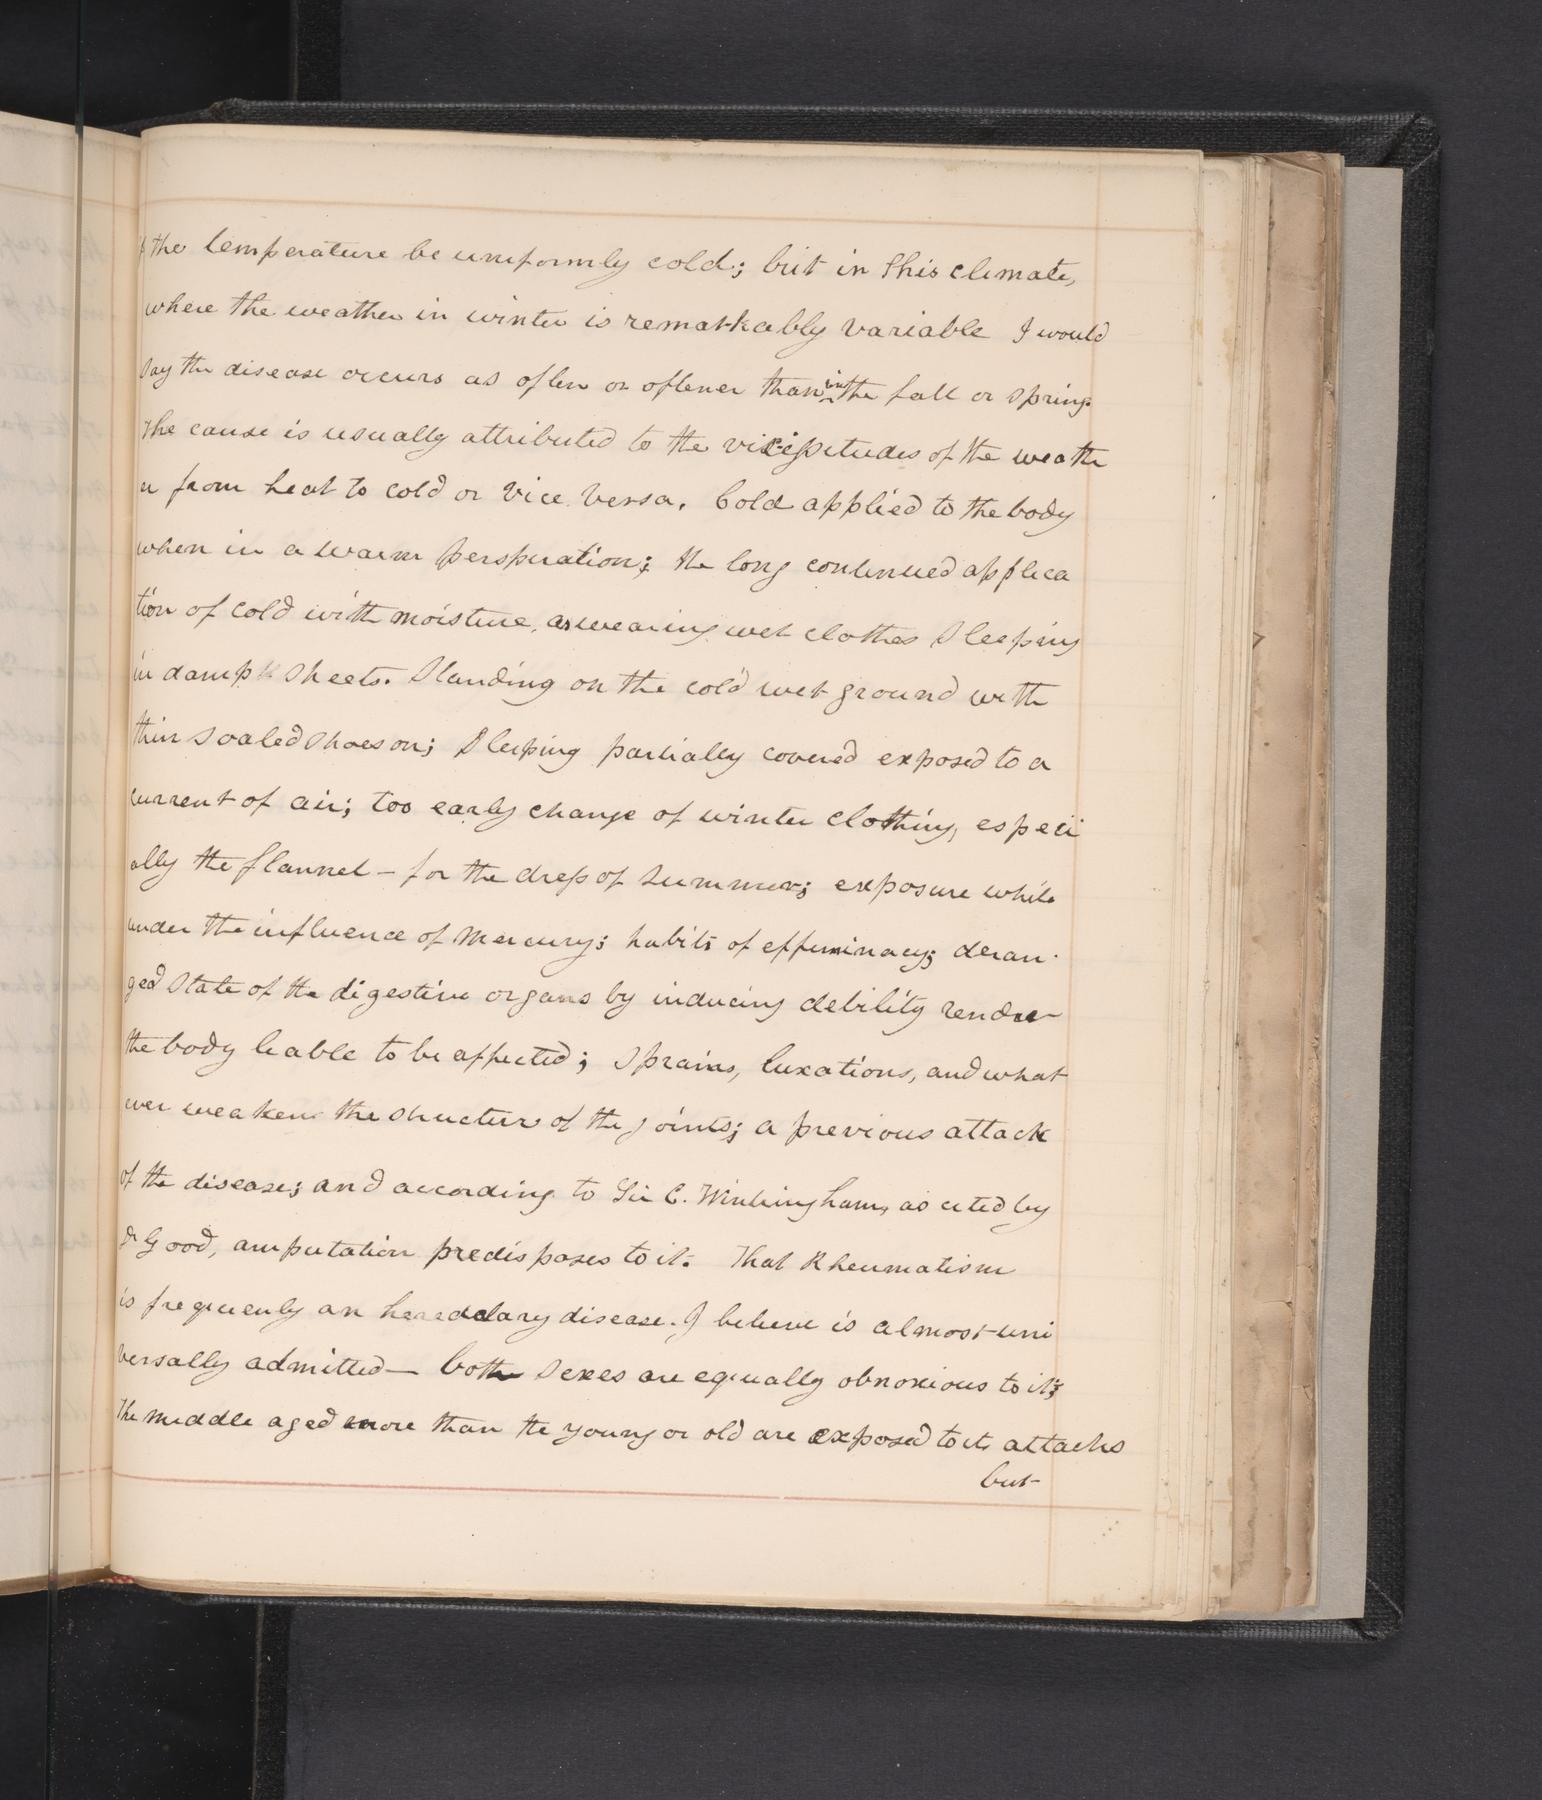 if the temperature be uniformly cold; but in this climate,
where the weather in winter is remarkably variable I would
say the disease occurs as often or oftener than in the fall or spring.
The cause is usually attributed to the vicissitudes of the weath
er from heat to cold or vice versa. Cold applied to the body
when in a warm perspiration; the long continued applica
tion of cold with moisture, as wearing wet clothes sleeping
in damp sheets. Standing on the cold wet ground with
thin soaled shoes on; sleeping partially covered exposed to a
current of air; too early change of winter clothing, especi
ally the flannel – for the dress of summer; exposure while
under the influence of mercury; habits of effeminacy; deran-
ged state of the digestive organs by inducing debility render
the body leable to be affected; sprains, luxations, and what
ever weakens the structure of the joints; a previous attack
of the disease; and according to Sir C. Wintringham, as cited by
Dr Good, amputation predisposes to it. That Rheumatism
is frequenly an heredelary disease. I believe is almost uni
versally admitted — Both sexes are equally obnoxious to it;
The middle aged more than the young or old are exposed to its attacks
but